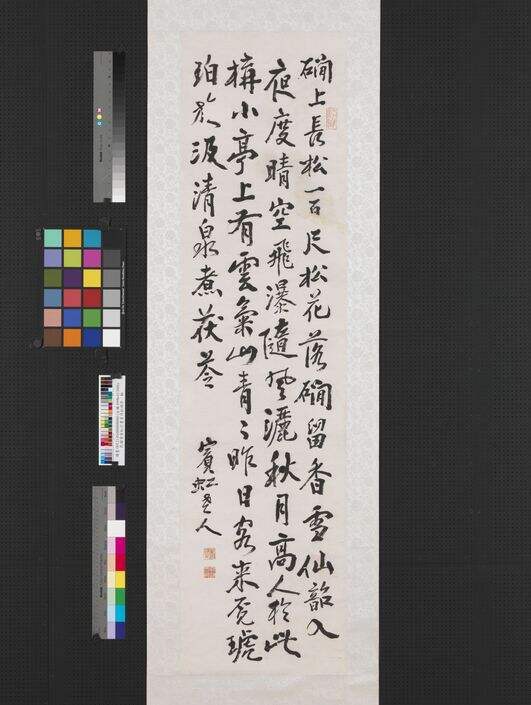 磵上長松一百尺松花落磵留香雪仙韶入
夜度晴空飛瀑隨風灑秋月高人於此
構小亭上有雲氣山青〻昨日客來覓琥
珀汲清泉煮茯苓
賓虹老人